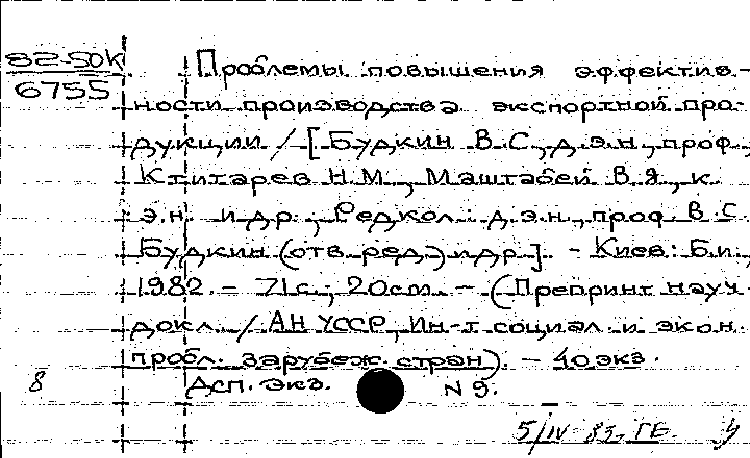 82-50К
6755
Проблемы повышения эффектив-
ности производства экспортной про-
дукции / [Будкин В.С., д.э.н., проф.,
Ктитарев Н.М., Маштабей В.Я., к.
э.н. и др.; Редкол.: д.э.н., проф. В.С.
Будкин (отв. ред.) и др.]. - Киев: Б.и.,
1982. - 71 с.; 20 см. - (Препринт науч.
докл. / АН УССР, Ин-т социал. и экон.
пробл. зарубеж. стран). - 40 экз.
8 Дсп. экз. N 9.
5/IV-83, ГБ. У